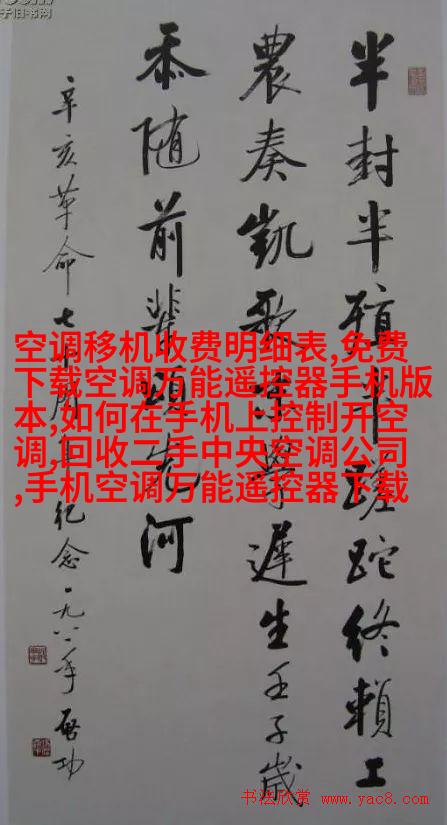 子旧书网
半封半殖半蹉跎終賴工
農奏凱歌學遲生壬子歲
忝随前輩頌先河
辛亥革命七十周年纪念一九八一年啓功
空调移机收费明细表,免费
下载空调万能遥控器手机版
本,如何在手机上控制开空
调,回收二手中央空调公司
,手机空调万能遥控器下载
书法欣赏
www.yac8.com